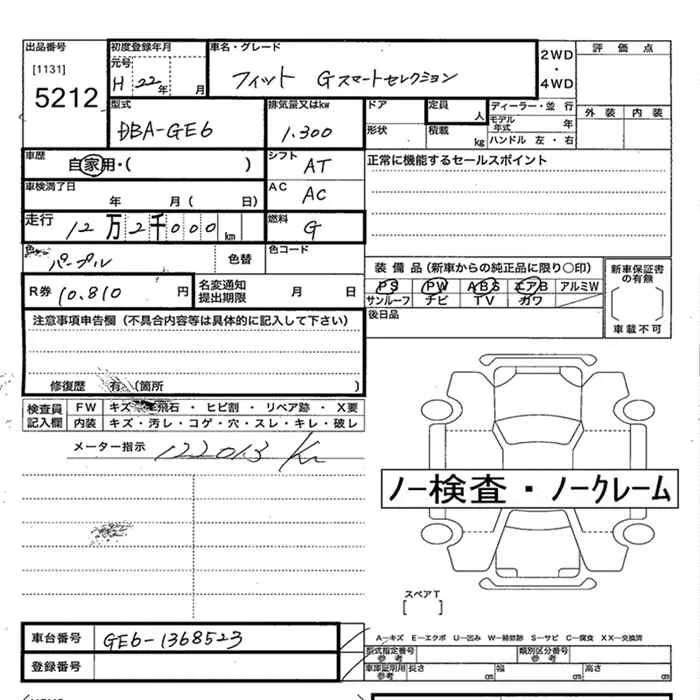 出品番号 初度登録年月 車名・グレード 2WD・4WD 評価点
[1131] 元号 H 22年 月 フィット Gスマートセレクション
5212 型式 排気量又はkw ドア 定員 人 ディーラー・並行 外装 内装
DBA-GE6 1.300 形状 積載 kg モデル年式 年
ハンドル 左・右
車歴 自家用・( ) シフト AT 正常に機能するセールスポイント
車検満了日 年 月( 日) AC AC
走行 12万2千000km 燃料 G
色 パープル 色替 色コード
装備品(新車からの純正品に限り○印) 新車保証書の有無
R券 10.810円 名変通知提出期限 月 日 PS PW ABS エアB アルミW
サンルーフ ナビ TV カワ 車載不可
注意事項申告欄(不具合内容等は具体的に記入して下さい) 後日品
修復歴 有(箇所 )
検査員記入欄 FW キズ・飛石・ヒビ割・リペア跡・X要
内装 キズ・汚レ・コゲ・穴・スレ・キレ・破レ
メーター指示 122013 Km
ノー検査・ノークレーム
スペアT
[ ]
車台番号 GE6-1368523 A−キズ E−エクボ U−凹み W−補修跡 S−サビ C−腐食 XX−交換済
型式指定番号 参考 類別区分番号 参考
登録番号 車庫証明用参考 長さ cm 幅 cm 高さ cm